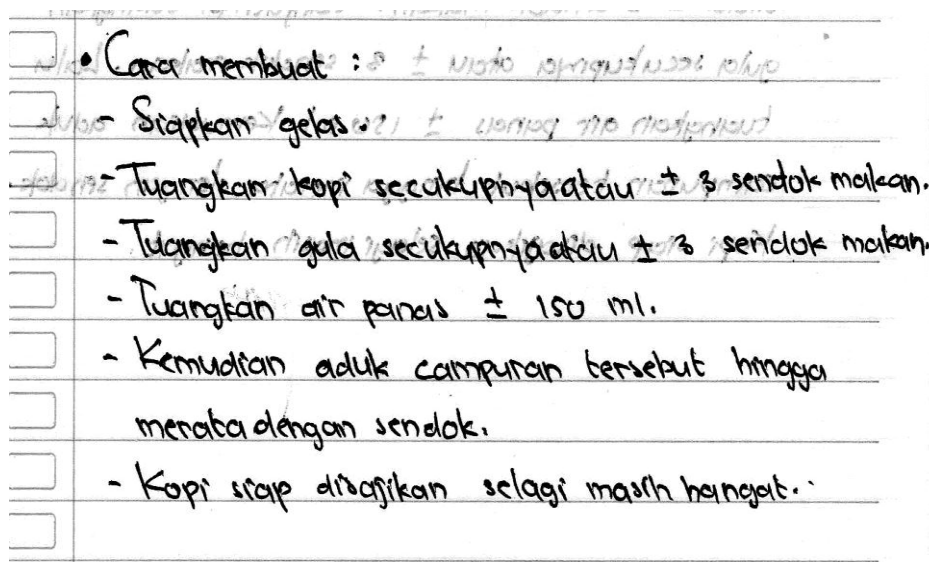 • Cara membuat :
- Siapkan gelas.
- Tuangkan kopi secukupnya atau ± 3 sendok makan.
- Tuangkan gula secukupnya atau ± 3 sendok makan.
- Tuangkan air panas ± 150 ml.
- Kemudian aduk campuran tersebut hingga
merata dengan sendok.
- Kopi siap disajikan selagi masih hangat.